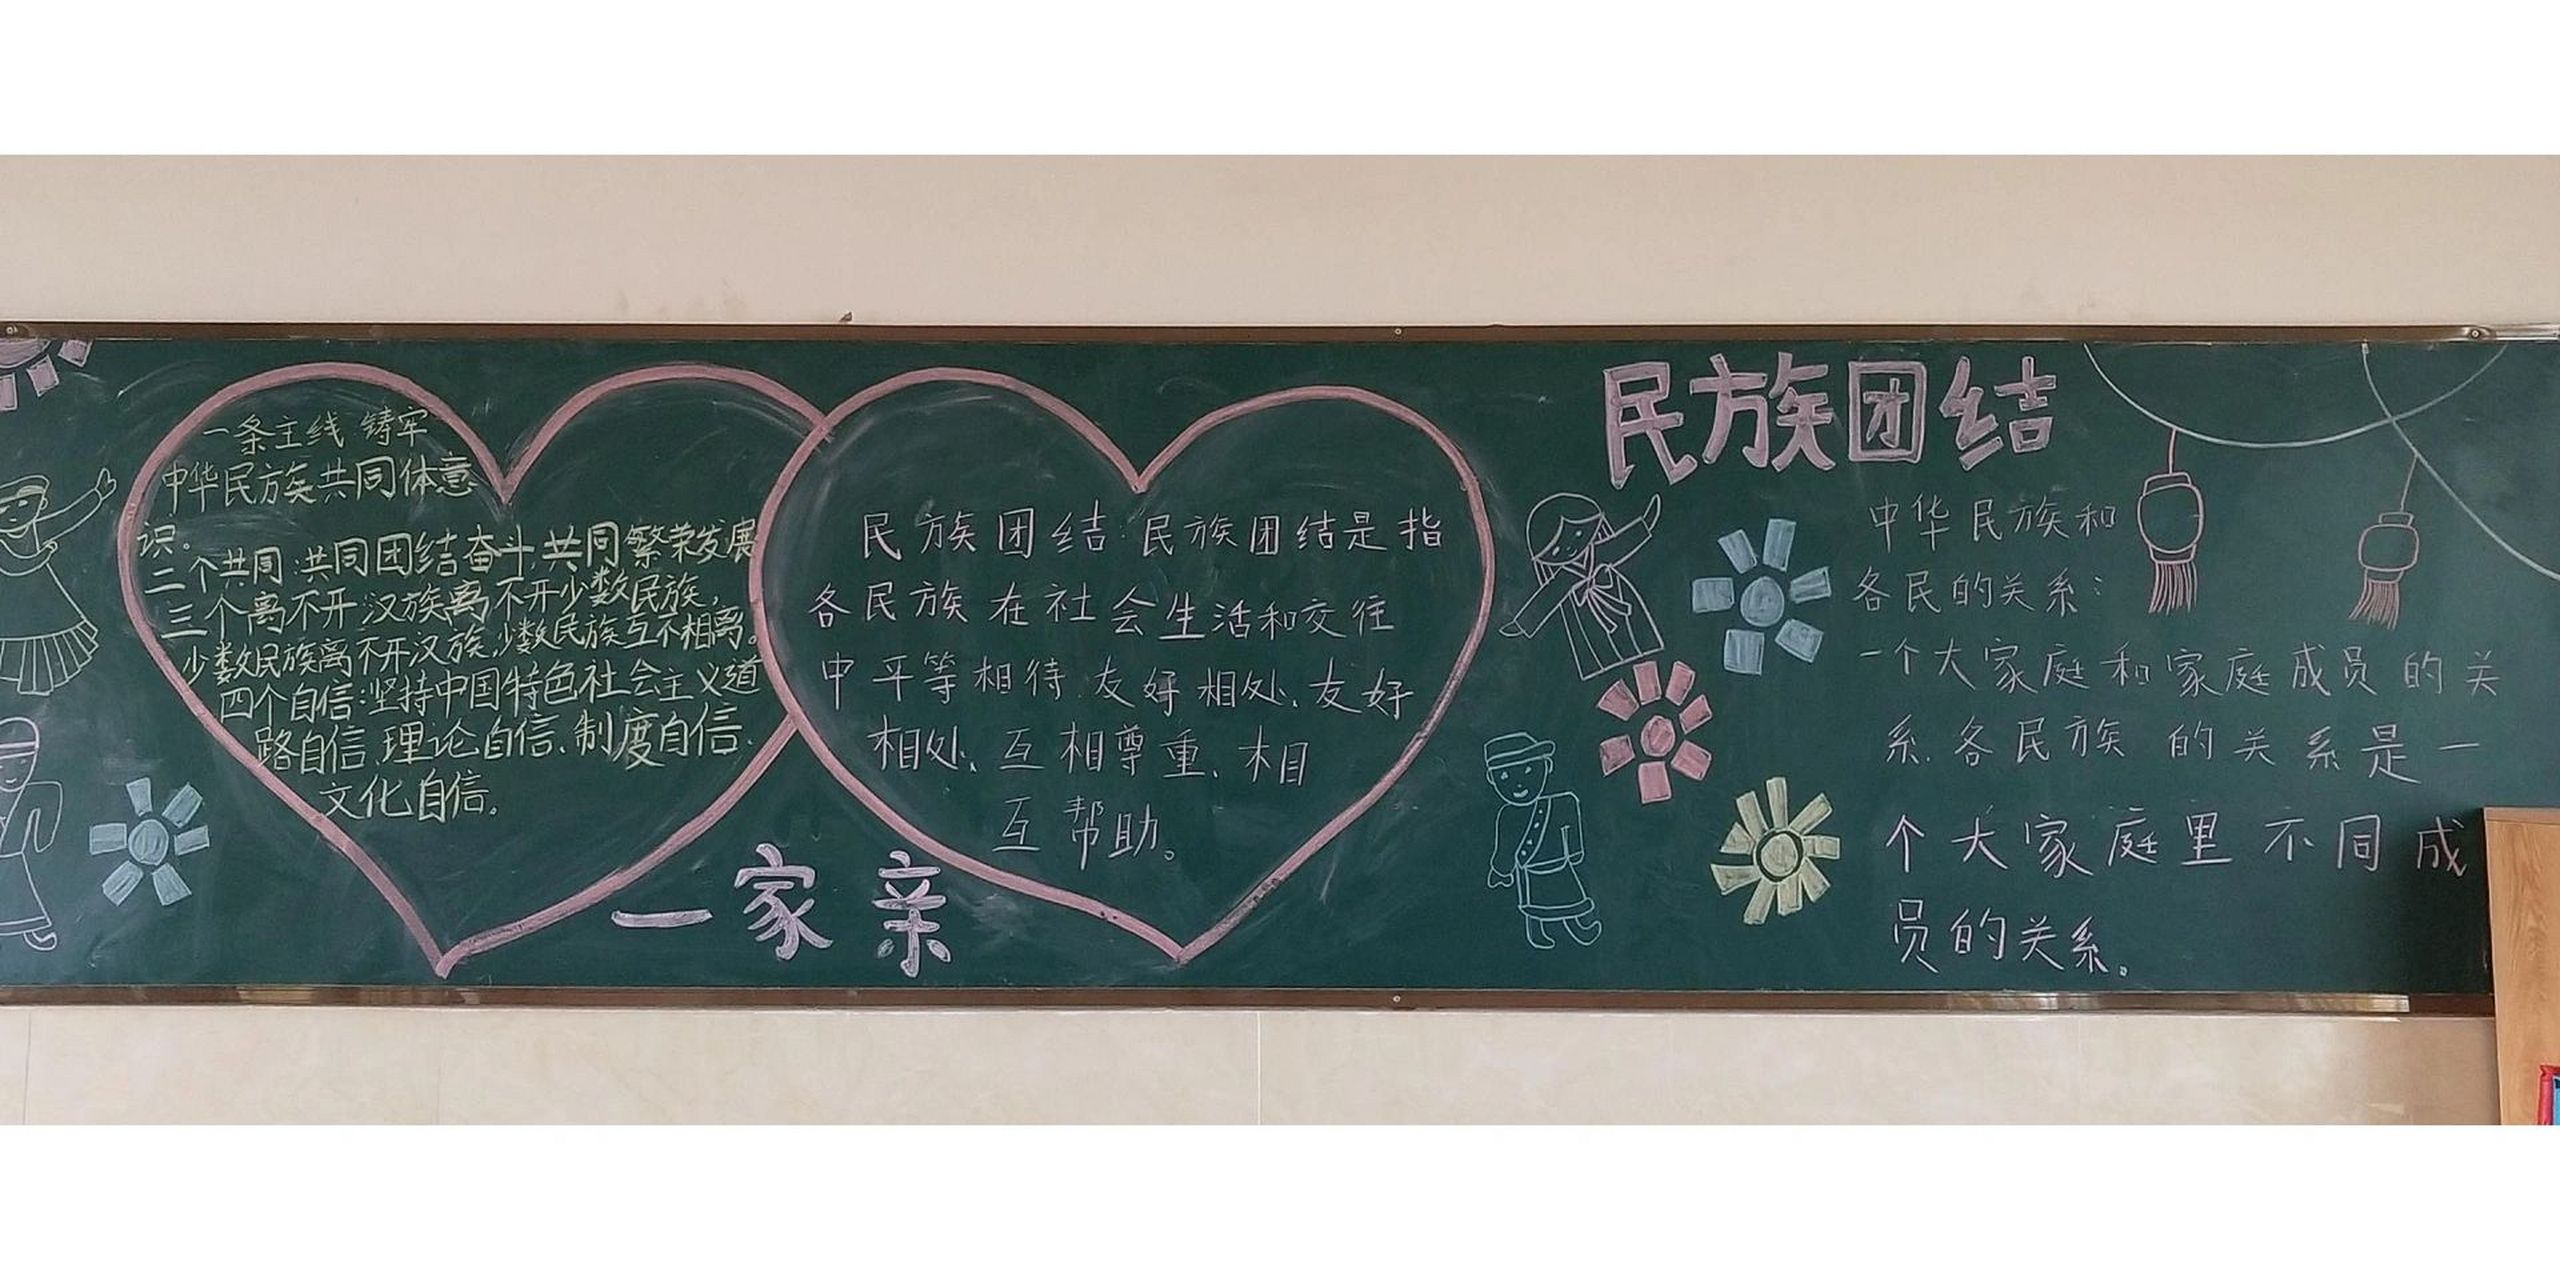 一条主线 铸牢
中华民族共同体意
识。
二个共同:共同团结奋斗,共同繁荣发展
三个离不开 汉族离不开少数民族,
少数民族离不开汉族,少数民族互不相离。
四个自信:坚持中国特色社会主义道
路自信、理论自信、制度自信、
文化自信。
一家亲
民族团结:民族团结是指
各民族在社会生活和交往
中平等相待.友好相处、友好
相处、互相尊重、相
互帮助。
民族团结
中华民族和
各民的关系:
一个大家庭和家庭成员的关
系.各民族的关系是一
个大家庭里不同成
员的关系。